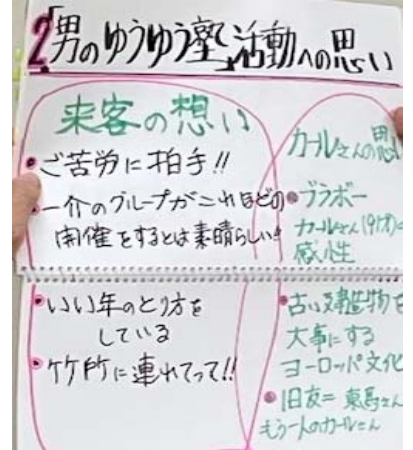 2「男のゆうゆう塾」活動への思い
来客の想い
・ご苦労に拍手!!
・一介のグループがこれほどの
開催をするとは素晴らしい!
・いい年のとり方を
している
・竹所に連れてって!!
カールさんの思
・ブラボー
カールさん(91才)の
感性
・古い建造物を
大事にする
ヨーロッパ文化
・旧友=東馬さん
もう一人のカールさん